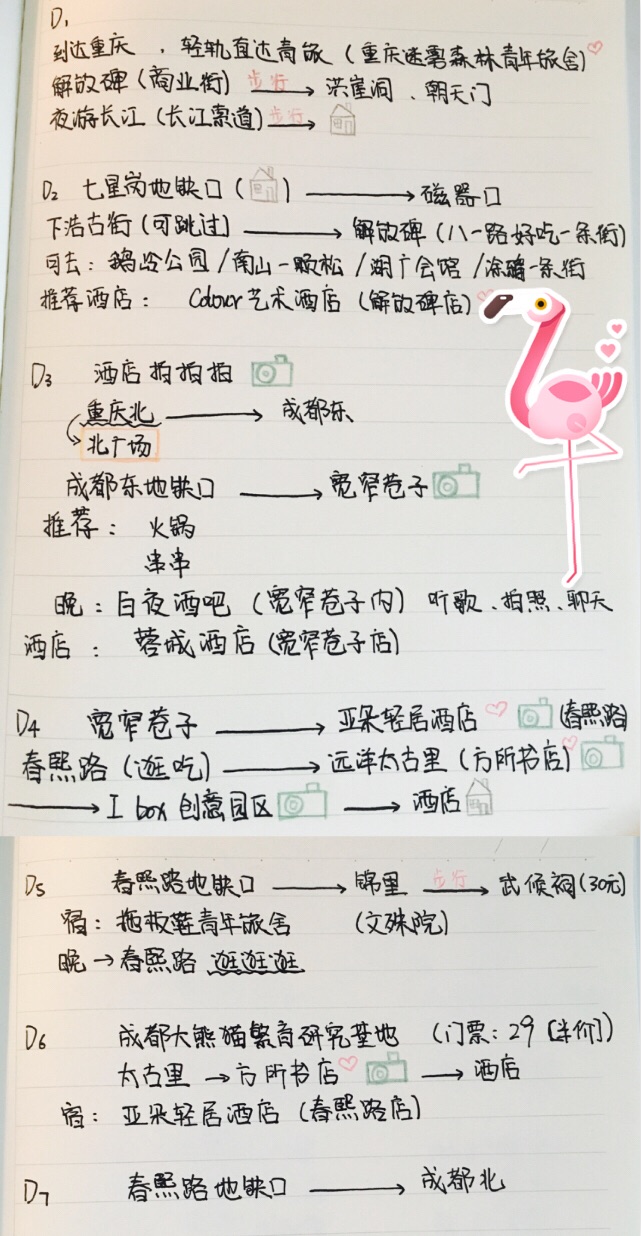 D1
到达重庆，轻轨直达青旅（重庆迷雾森林青年旅舍）
解放碑（商业街）步行→洪崖洞、朝天门
夜游长江（长江索道）步行→
D2 七星岗地铁口（ ）→磁器口
下浩古街（可跳过）→解放碑（八一路好吃一条街）
可去：鹅岭公园/南山一颗松/湖广会馆/涂鸦一条街
推荐酒店：Colour艺术酒店（解放碑店）
D3 酒店拍拍拍
重庆北→成都东
北广场
成都东地铁口→宽窄巷子
推荐：火锅
串串
晚：白夜酒吧（宽窄巷子内）听歌、拍照、聊天
酒店：蓉城酒店（宽窄巷子店）
D4 宽窄巷子→亚朵轻居酒店（春熙路）
春熙路（逛吃）→远洋太古里（方所书店）
→I box创意园区→酒店
D5 春熙路地铁口→锦里 步行→武侯祠(30元)
宿：拖板鞋青年旅舍（文殊院）
晚→春熙路 逛逛逛
D6 成都大熊猫繁育研究基地（门票：29［半价］）
太古里→方所书店→酒店
宿：亚朵轻居酒店（春熙路店）
D7 春熙路地铁口→成都北